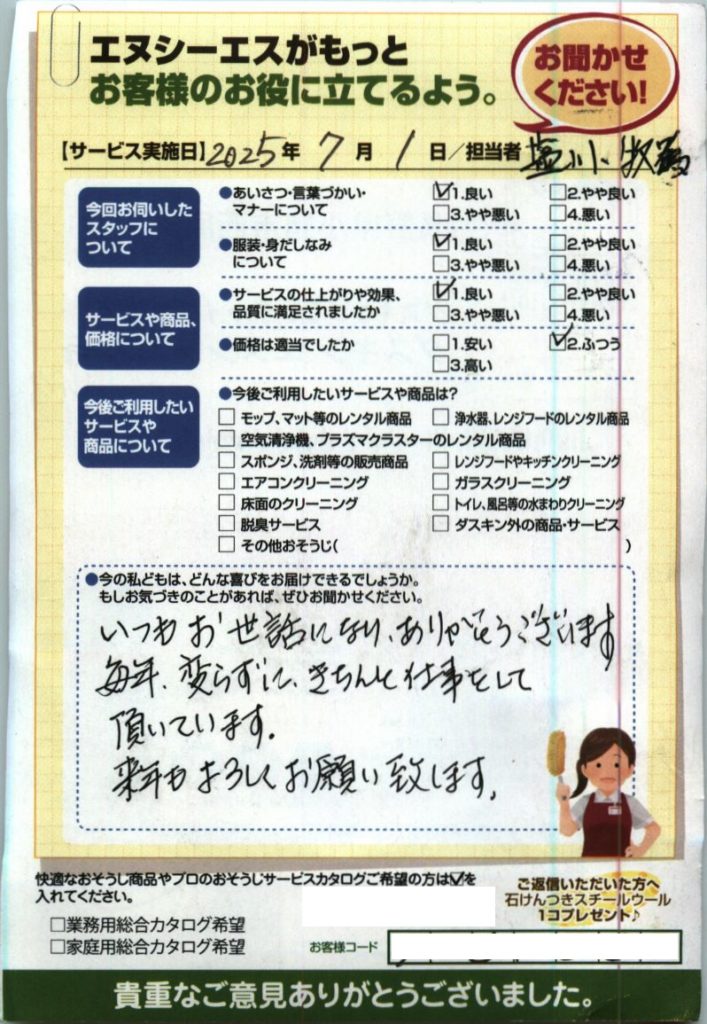 エヌシーエスがもっと
お客様のお役に立てるよう。
お聞かせ
ください!
【サービス実施日】2025年 7月 1日/担当者 塩川
今回お伺いした
スタッフに
ついて
●あいさつ・言葉づかい・
マナーについて
☑1.良い □2.やや良い
□3.やや悪い □4.悪い
●服装・身だしなみ
について
☑1.良い □2.やや良い
□3.やや悪い □4.悪い
サービスや商品、
価格について
●サービスの仕上がりや効果、
品質に満足されましたか
☑1.良い □2.やや良い
□3.やや悪い □4.悪い
●価格は適当でしたか
□1.安い ☑2.ふつう
□3.高い
今後ご利用したい
サービスや
商品について
●今後ご利用したいサービスや商品は?
□ モップ、マット等のレンタル商品 □ 浄水器、レンジフードのレンタル商品
□ 空気清浄機、プラズマクラスターのレンタル商品
□ スポンジ、洗剤等の販売商品 □ レンジフードやキッチンクリーニング
□ エアコンクリーニング □ ガラスクリーニング
□ 床面のクリーニング □ トイレ、風呂等の水まわりクリーニング
□ 脱臭サービス □ ダスキン外の商品・サービス
□ その他おそうじ( )
●今の私どもは、どんな喜びをお届けできるでしょうか。
もしお気づきのことがあれば、ぜひお聞かせください。
いつもお世話になり、ありがとうございます
毎年、変らずに、きちんと仕事をして
頂いています。
来年もよろしくお願い致します。
快適なおそうじ商品やプロのおそうじサービスカタログご希望の方は☑を
入れてください。
□業務用総合カタログ希望
□家庭用総合カタログ希望
お客様コード
ご返信いただいた方へ
石けんつきスチールウール
1コプレゼント♪
貴重なご意見ありがとうございました。